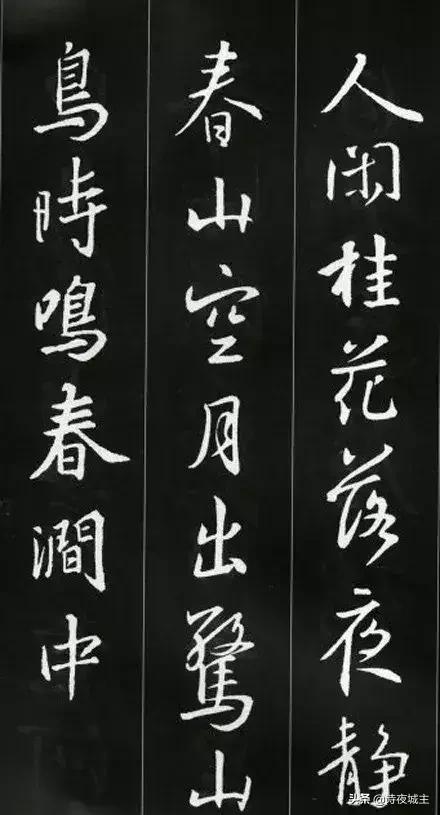 人闲桂花落夜静
春山空月出驚山
鳥時鳴春澗中
头条 @诗夜城主